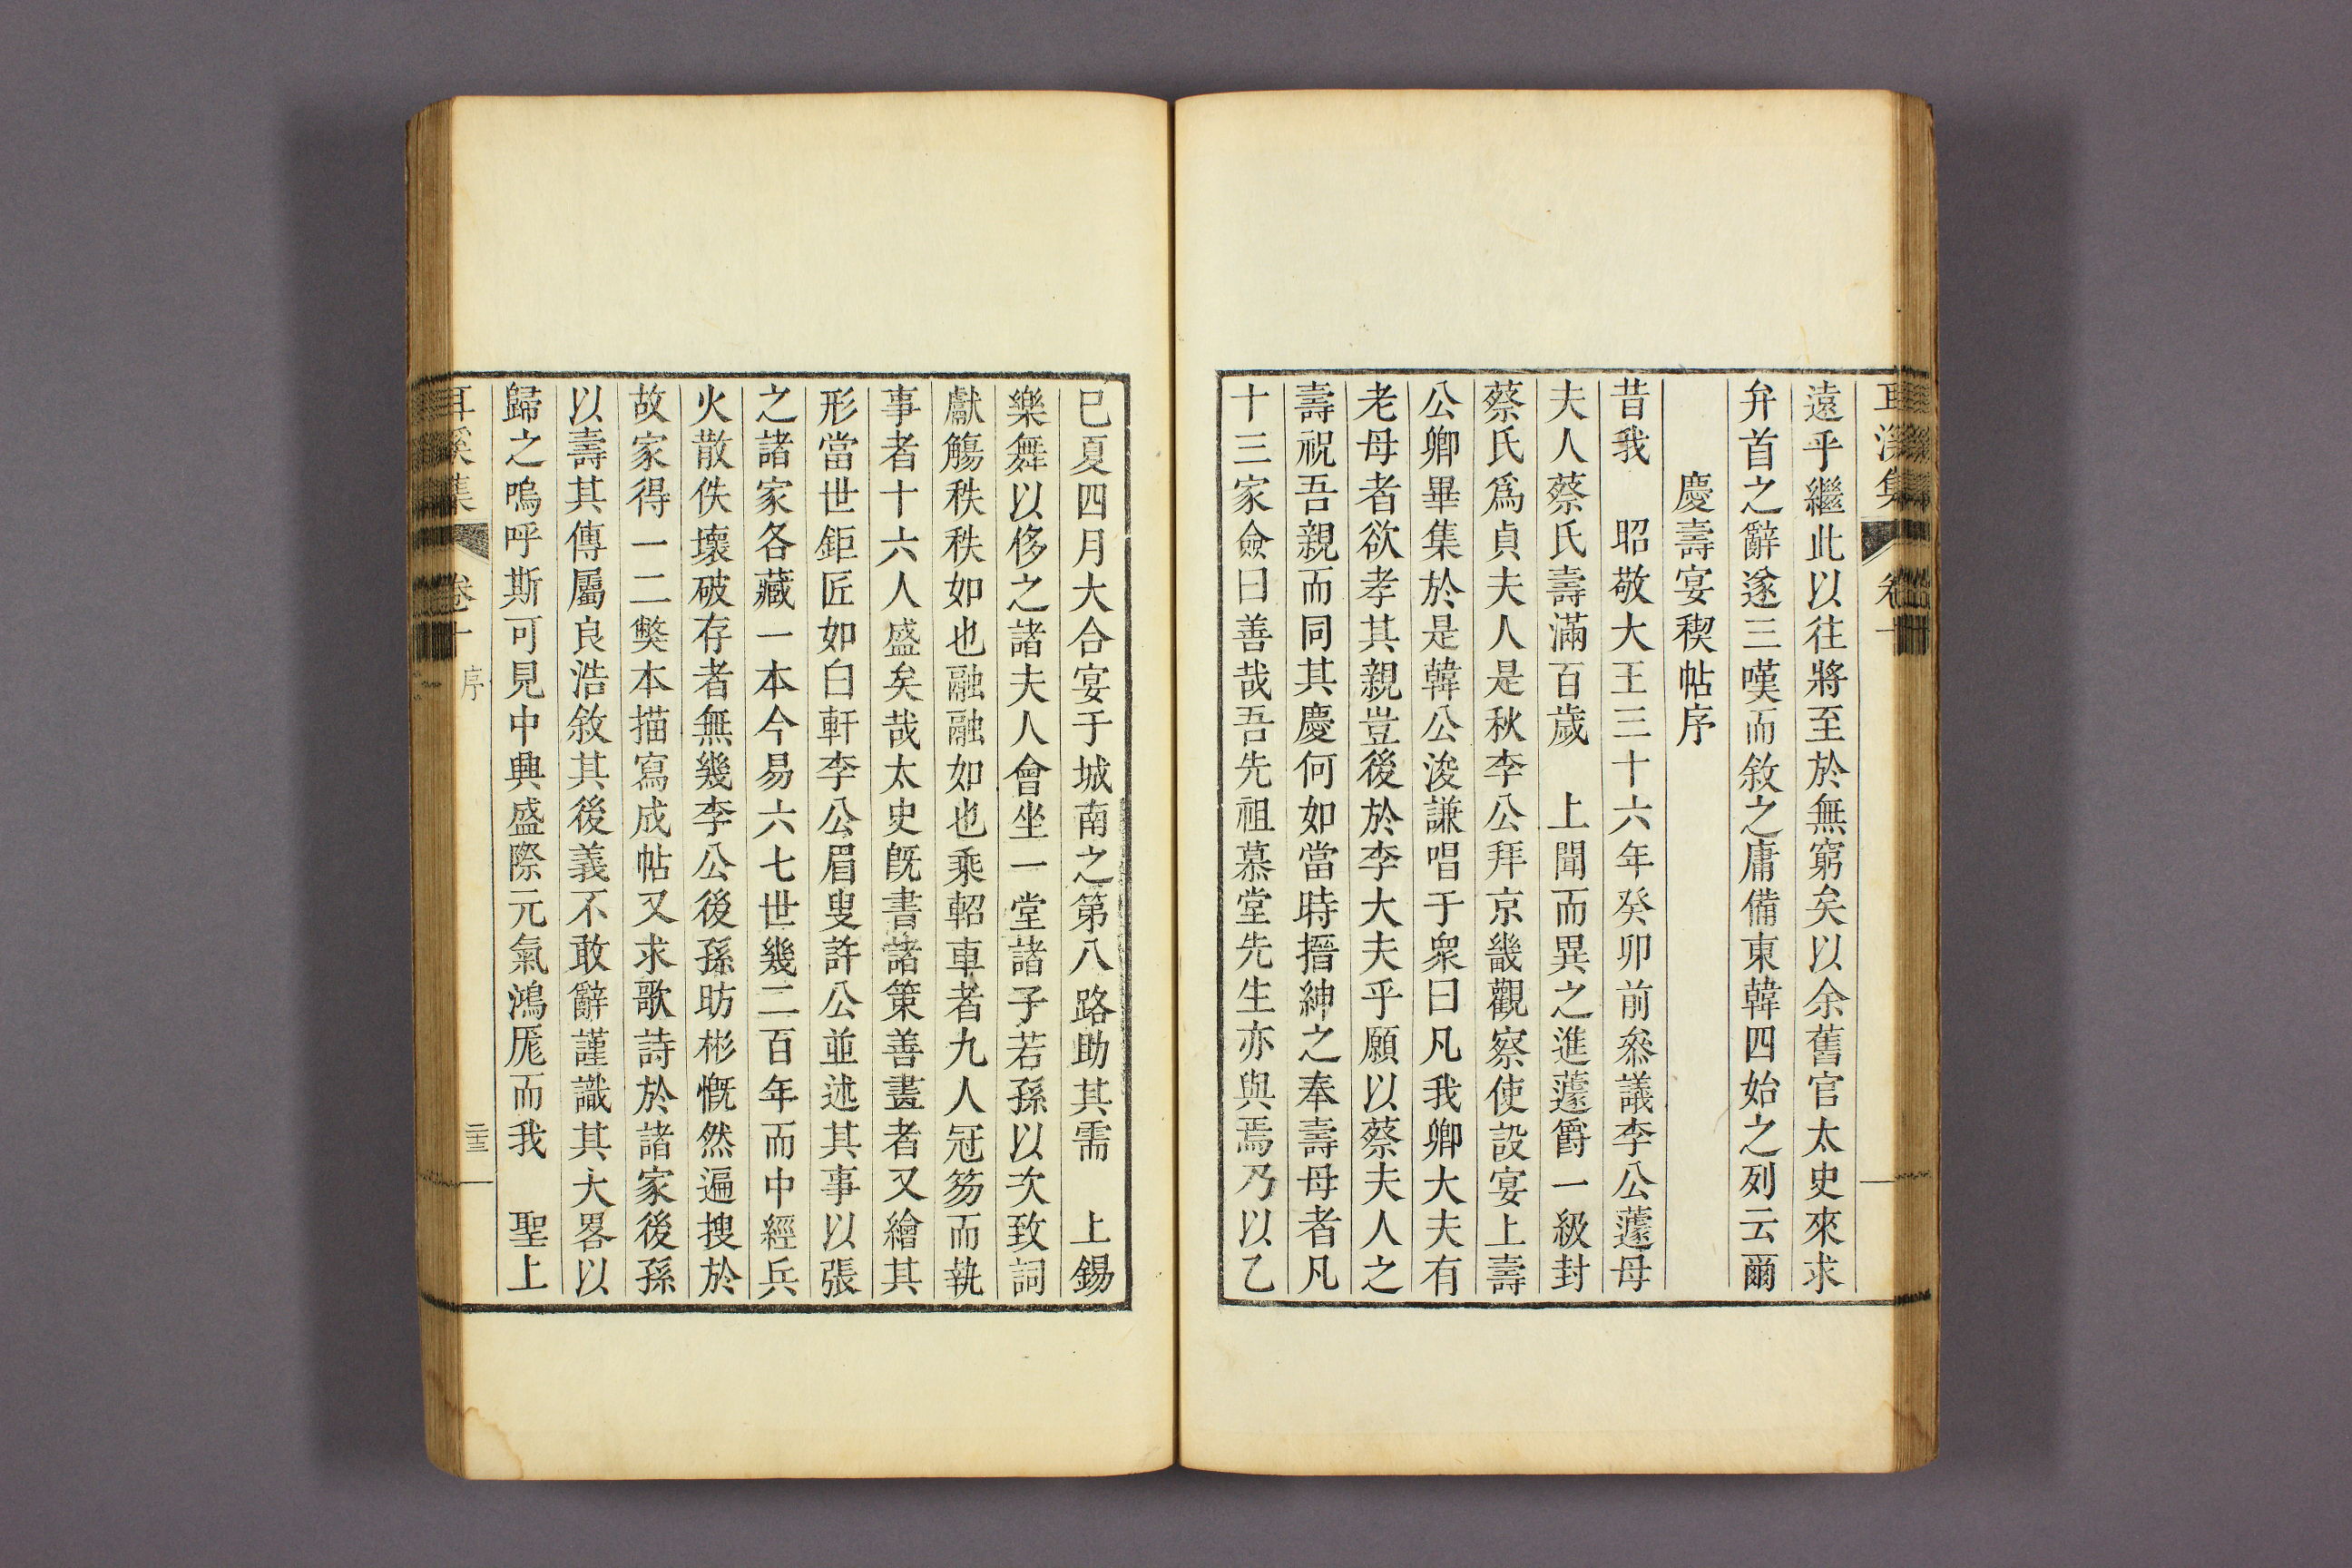 遠乎繼此以往將至於無窮矣以余舊官太史來求
弁首之辭遂三嘆而敘之庸備東韓四始之列云爾
慶壽宴稧帖序
昔我　昭敬大王三十六年癸卯前叅議李公蘧母
夫人蔡氏壽滿百歲　上聞而異之進蘧爵一級封
蔡氏爲貞夫人是秋李公拜京畿觀察使設宴上壽
公卿畢集於是韓公浚謙唱于衆曰凡我卿大夫有
老母者欲孝其親豈後於李大夫乎願以蔡夫人之
壽祝吾親而同其慶何如當時搢紳之奉壽母者凡
十三家僉曰善哉吾先祖慕堂先生亦與焉乃以乙
巳夏四月大合宴于城南之第八路助其需　上錫
樂舞以侈之諸夫人會坐一堂諸子若孫以次致詞
獻觴秩秩如也融融如也乘軺車者九人冠笏而執
事者十六人盛矣哉太史旣書諸策善畫者又繪其
形當世鉅匠如白軒李公眉叟許公並述其事以張
之諸家各藏一本今易六七世幾二百年而中經兵
火散佚壞破存者無幾李公後孫昉彬慨然遍搜於
故家得一二獘本描寫成帖又求歌詩於諸家後孫
以壽其傳屬良浩敘其後義不敢辭謹識其大畧以
歸之嗚呼斯可見中興盛際元氣鴻厖而我　聖上
耳溪集　卷十　序　二十三